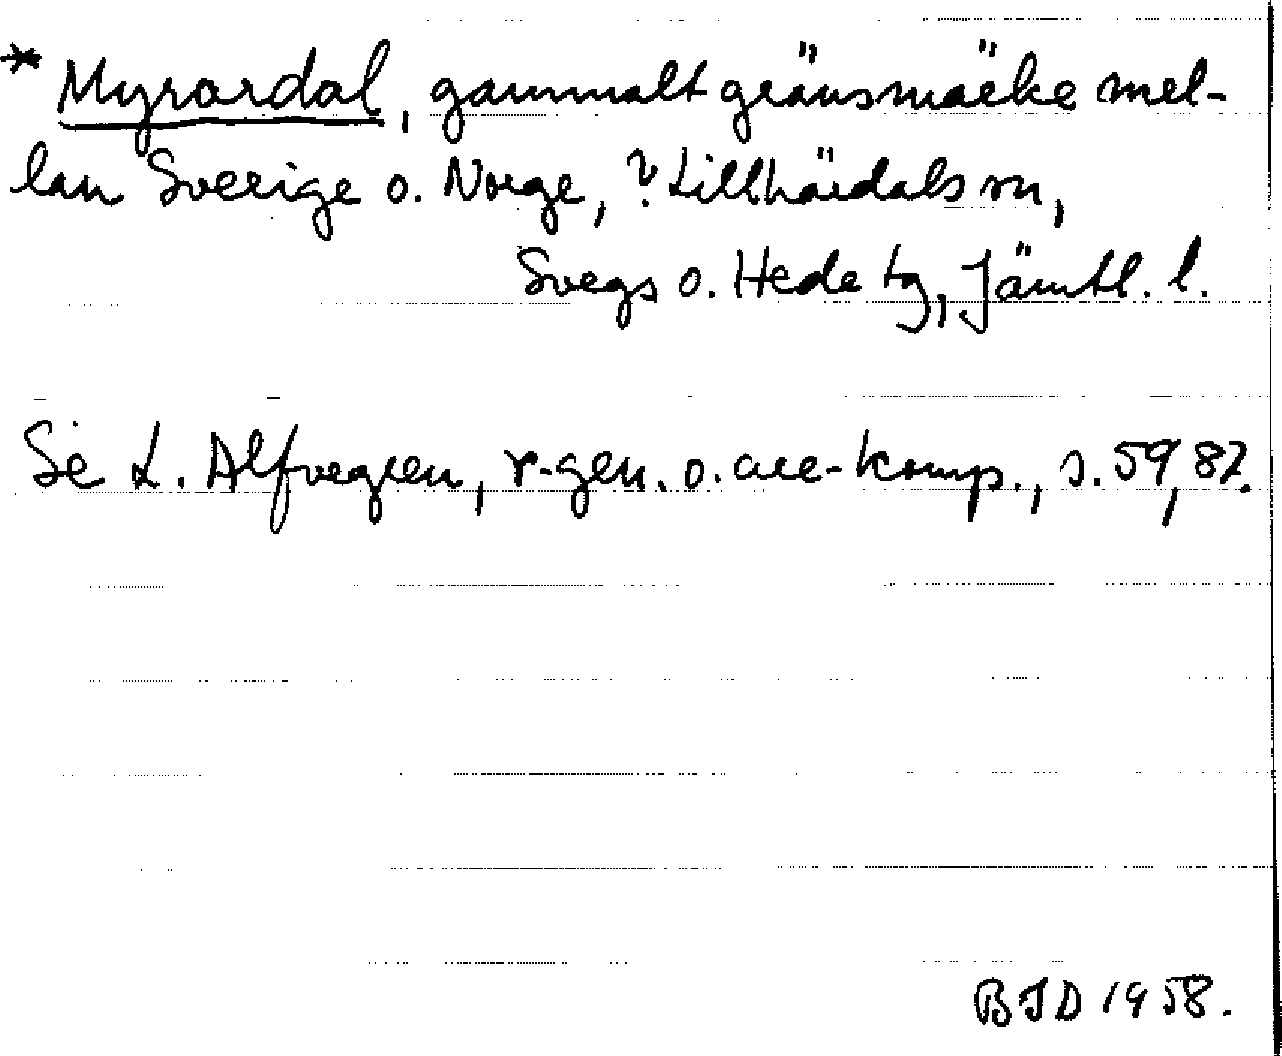 * Myrardal, gammalt gränsmärke mel-
lan Sverige o. Norge, ? Lillhärdals sn,
Svegs o. Hede tg, Jämtl. l.
Se L. Alfvegren, r-gen. o. are-komp., s. 59, 87.
BJD 1958.